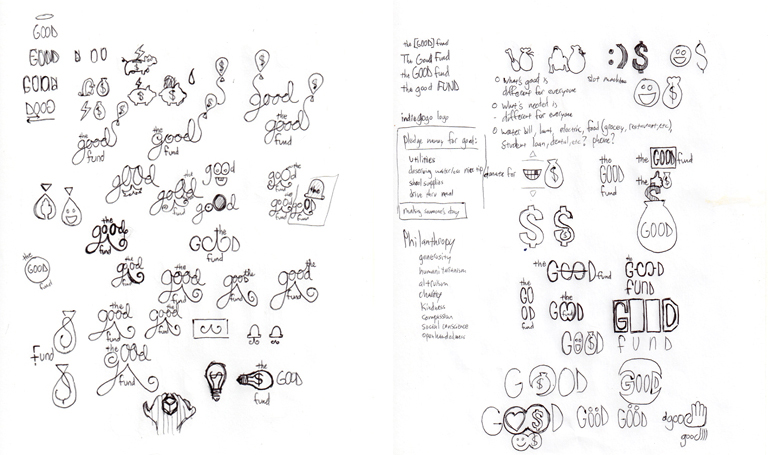 GOOD
GOOD
GOOD
GOOD
good
fund
good
fund
good
the
good
fund
good
the
good
good
the
good
fund
good
the
good
fund
the
GOOD
fund
the
good
fund
the
good
fund
the
good
fund
the
good
fund
the
good
fund
the
good
fund
Fund
the
good
fund
the
GOOD
fund
the [GOOD] fund
The Good Fund
the GOOD fund
the good FUND
indiegogo logo
pledge money for good:
utilities
school supplies
drive thru meal
making someone's day
Philanthropy
generosity
humanitarianism
altruism
charity
kindness
compassion
social conscience
openhandedness
:) $
$
o What's good is
different for everyone
slot machine
o What's needed is
different for everyone
o water bill, lent, electric, food (grocery, restaurant, etc)
student loan, dental, etc? phone?
donate for
the
GOOD
fund
the GOOD fund
the
GOOD
$ $
the GOOD fund
GOOD
FUND
the
GO
OD
fund
the
GOOD
fund
GOOD
GOOD
FUND
GOOD
GOOD
GOOD
GOOD
GOOD
dgood
good)))